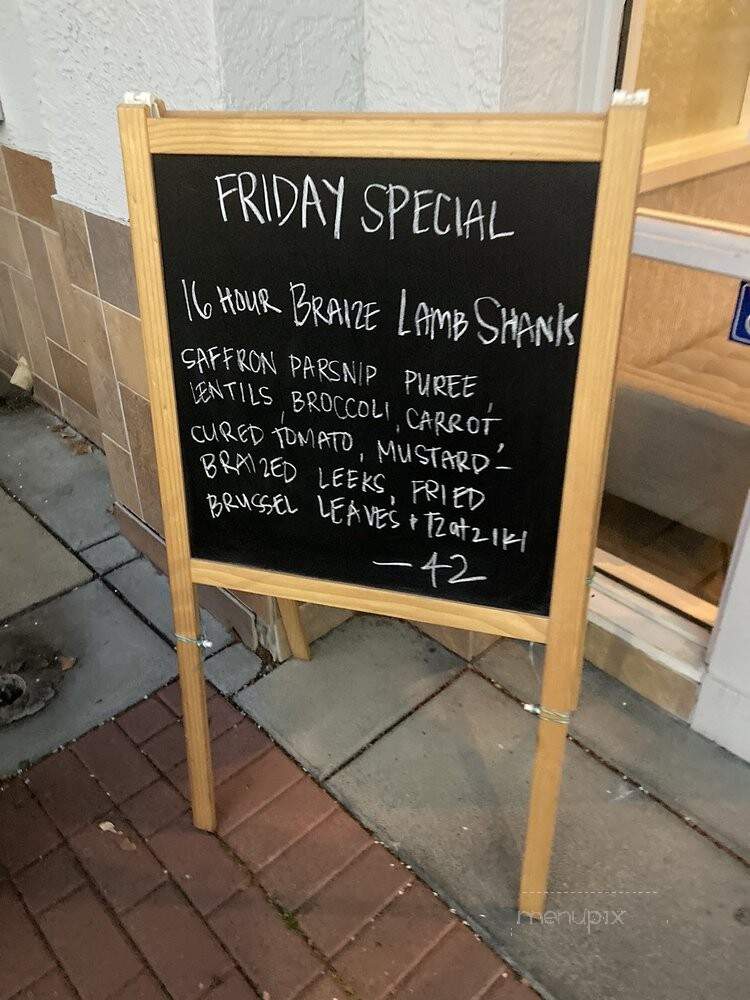 FRIDAY SPECIAL
16 HOUR BRAIZE LAMB SHANK
SAFFRON PARSNIP PUREE,
LENTILS, BROCCOLI, CARROT
CURED TOMATO, MUSTARD-
BRAIZED LEEKS, FRIED
BRUSSEL LEAVES + TZATZIKI
—42
menupix